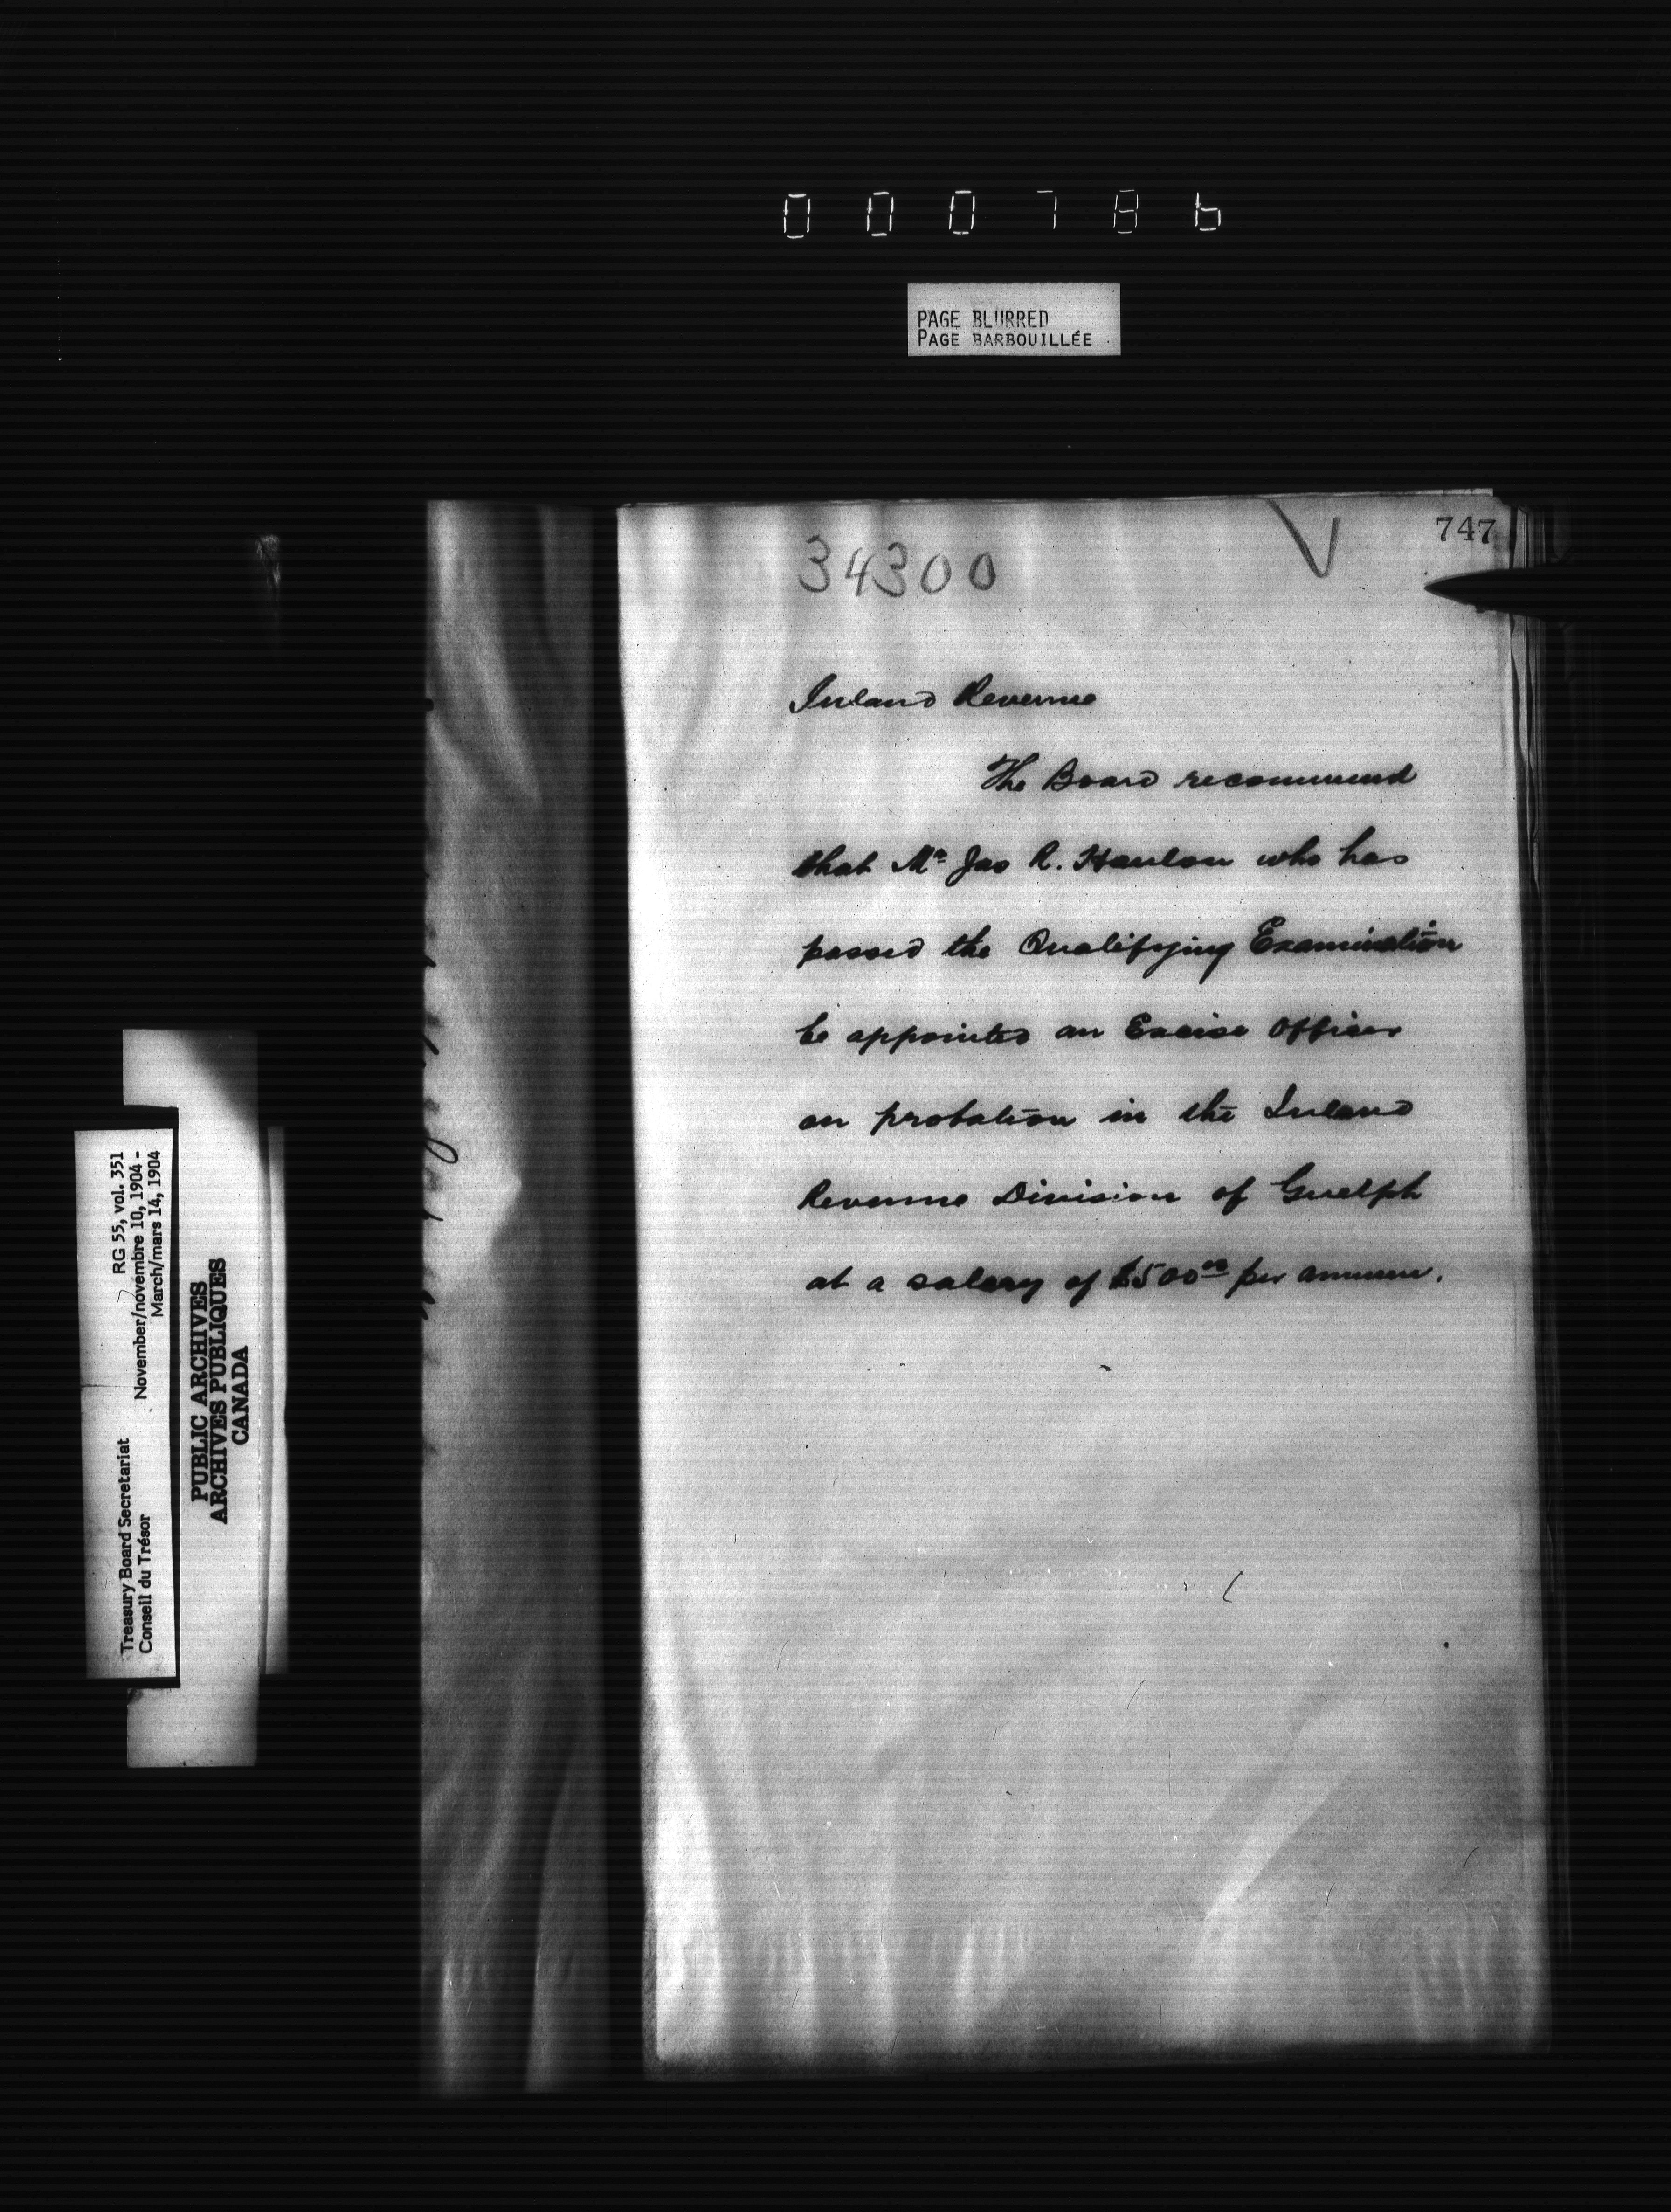 000786
PAGE BLURRED
PAGE BARBOUILLÉE
747
34300
Inland Revenue
The Board recommend
that Mr Jas R. Hanlon who has
passed the Qualifying Examination
be appointed an Excise Officer
on probation in the Inland
Revenue Division of Guelph
at a salary of $500 00 per annum.
Treasury Board Secretariat RG 55, vol. 351
Conseil du Trésor November/novémbre 10, 1904 -
March/mars 14, 1904
PUBLIC ARCHIVES
ARCHIVES PUBLIQUES
CANADA